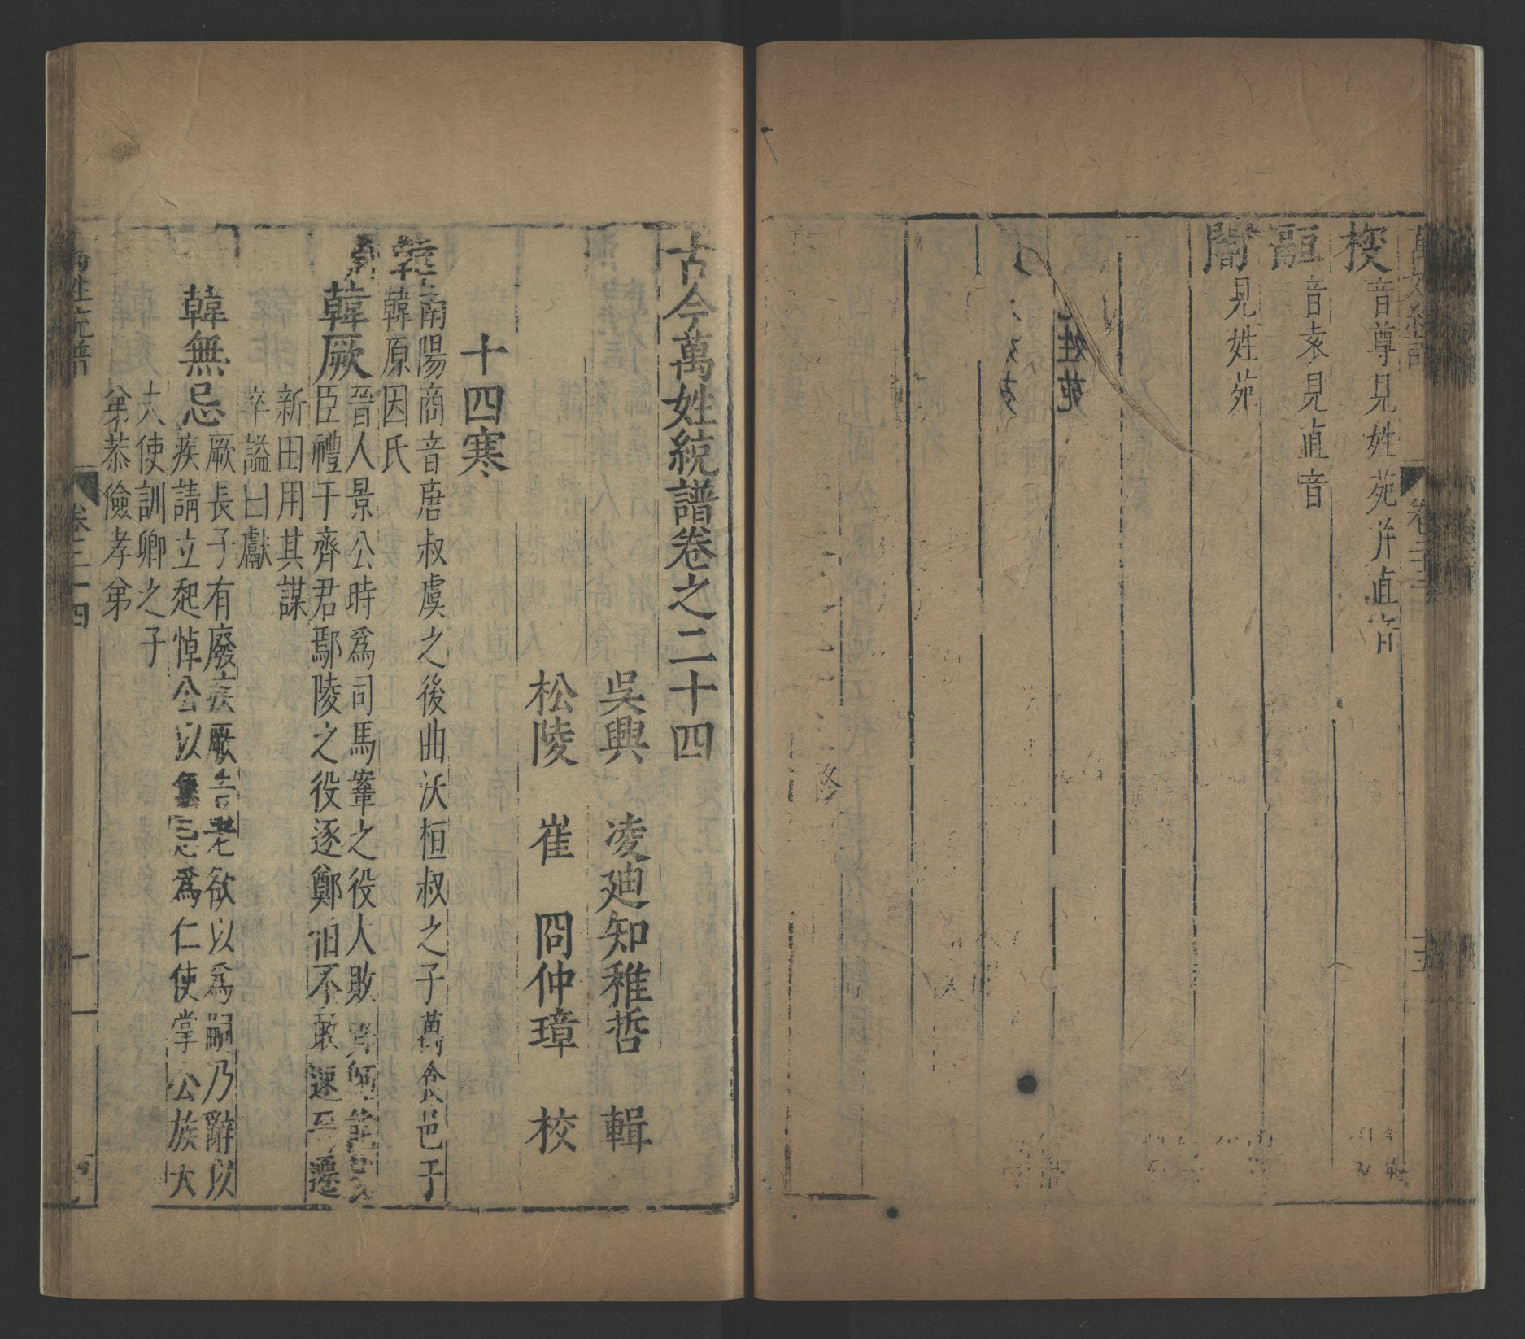 音尊見姓苑并直音
音友見直音
見姓苑
古今萬姓統譜卷之二十四
吳興 凌迪知稚哲 輯
松陵 崔 冏仲璋 校
十四寒
韓
南陽商音唐叔虞之後曲沃桓叔之子萬食邑于
韓原因氏
韓厥
晉人景公時爲司馬鞌之役人敗
臣禮于齊君鄢陵之役逐鄭伯不敢速
新田用其謀
卒謚曰獻
韓無忌
厥長子有廢疾厥告老欲以爲嗣乃辭以
疾請立起悼公以無忌爲仁使掌公族大
夫使訓卿之子
弟恭儉孝弟
卷二十四